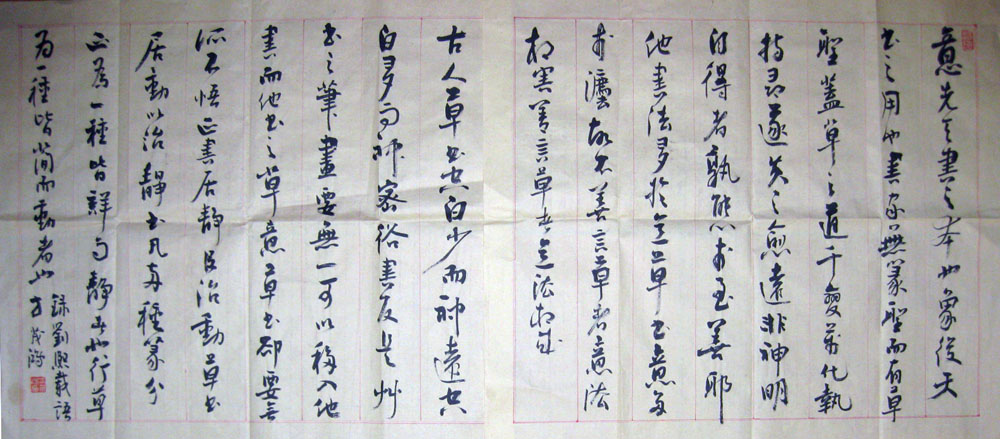 意先天書之本也象後天
書之用也書家無篆聖而有草
聖蓋草之道千變萬化執
持尋逐失之愈遠非神明
自得者孰能於至善耶
他書法多於意草書意多
於灋故不善言草者意法
相害善言草者意法相成
古人草書空白少而神遠空
白多而神密俗書反是艸
書之筆畫要無一可以移入他
書而他書之草意草書卻要無
所不悟正書居靜以治動草書
居動以治靜書凡兩種篆分
正為一種皆詳而靜者也行草
為一種皆簡而動者也
錄劉熙載語